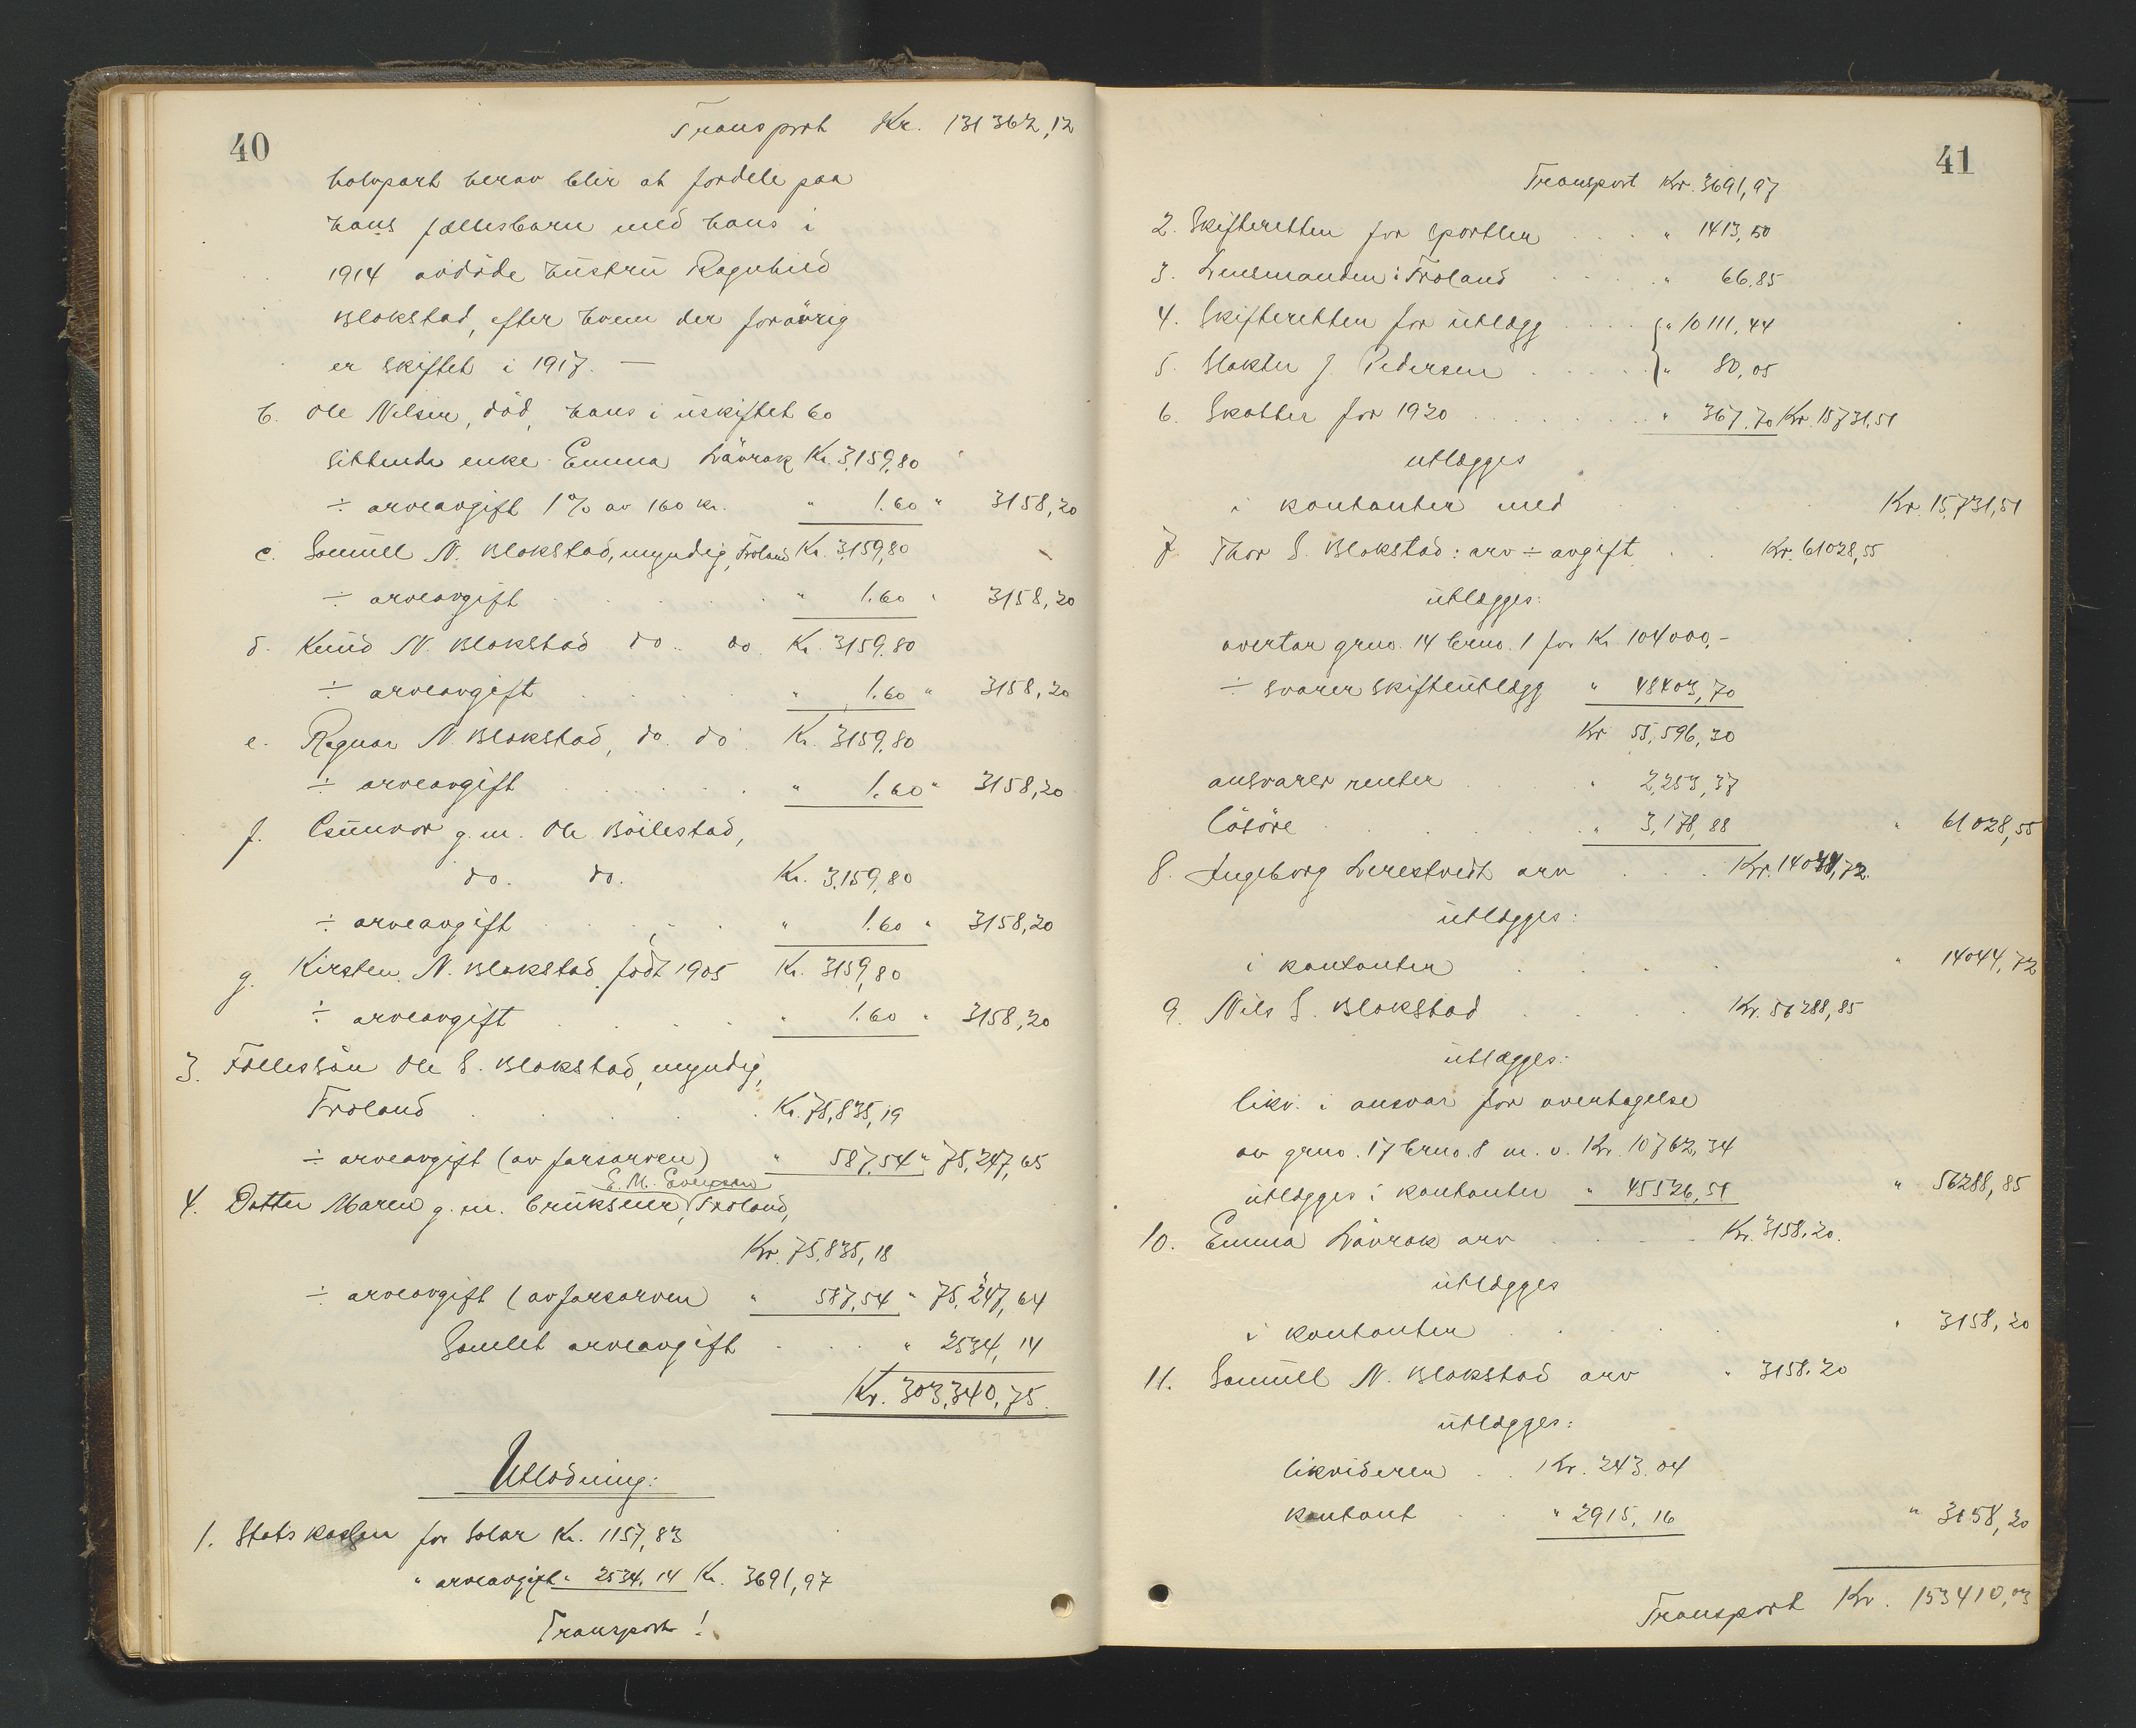 40
Transport Kr. 131362,12
halvpart herav blir at fordele paa
hans fællesbarn med hans i
1914 avdöde hustru Ragnhild
Blakstad, efter hvem der forövrig
er skiftet i 1917. —
b. Ole Nilsen, död, hans i uskiftet bo
sittende enke Emma Lavrak Kr. 3,159,80
÷ arveavgift 1% av 160 kr. " 1.60 " 3158,20
c. Samuel N. Blakstad, myndig, Froland Kr. 3,159,80
÷ arveavgift " 1.60 " 3158,20
d. Knud N. Blakstad do. do. Kr. 3159,80
÷ arveavgift " 1.60 " 3158,20
e. Ragnar N. Blakstad, do. do. Kr. 3159,80
÷ arveavgift " 1.60 " 3158,20
f. Gunvor g.m. Ole Böilestad,
do. do. Kr. 3,159,80
÷ arveavgift " 1.60 " 3158,20
g. Kirsten N. Blakstad, født 1905 Kr. 3159,80
÷ arveavgift " 1.60 " 3158,20
3. Fællessön Ole S. Blakstad, myndig,
Froland Kr. 75,835,19
÷ arveavgift (av farsarven) " 587,54 " 75,247,65
E. M. Evensen
4. Datter Maren g.m. brukseier, Froland,
Kr. 75,835,18
÷ arveavgift (av farsarven " 587,54 " 75,247,64
Samlet arveavgift " 2534,14
Kr. 303,340,75.
Utlodning:
1. Statskassen for Salær Kr. 1157,83
" arveavgift " 2534,14 Kr. 3691,97
Transport!
41
Transport Kr. 3691,97
2. Skifteretten for sportler " 1413,50
3. Lensmanden i Froland " 66,85
4. Skifteretten for utlægg " 10111,44
5. Slakter J. Pedersen " 80,05
6. Skatter for 1920 " 367,70 Kr. 15731,51
utlægges
i kontanter med Kr. 15,731,51
7. Thor S. Blakstad: arv ÷ avgift Kr. 61028,55
utlægges:
overtar grno. 14 brno. 1 for Kr. 104000,-
÷ svarer skifteutlægg " 48403,70
Kr 55,596,30
ansvarer renter " 2,253,37
lösöre " 3,178,88 " 61028,55
8. Ingeborg Lerestvedt arv Kr. 14044,72.
utlægges:
i kontanter " 14044,72
9. Nils S. Blakstad Kr. 56288,85
utlægges:
likv. i ansvar for overtagelse
av grno. 17 brno. 8 m.v. Kr. 10762,34
utlægges i kontanter " 45526,51 " 56288,85
10. Emma Lavrak arv Kr. 3158,20.
utlægges
i kontanter " 3158,20
11. Samuel N. Blakstad arv " 3158,20
utlægges:
likviderer Kr. 243,04
kontant " 2915,16 " 3158,20
Transport Kr. 153410,03